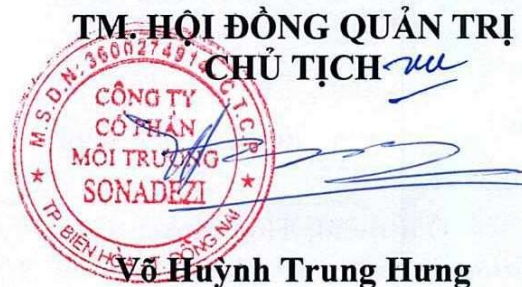 TM. HỘI ĐỒNG QUẢN TRỊ
CHỦ TỊCH
M.S.D.N: 3600274914 C.T.C.P
CÔNG TY
CỔ PHẦN
MÔI TRƯỜNG
SONADEZI
TP. BIÊN HÒA T. ĐỒNG NAI
Võ Huỳnh Trung Hưng